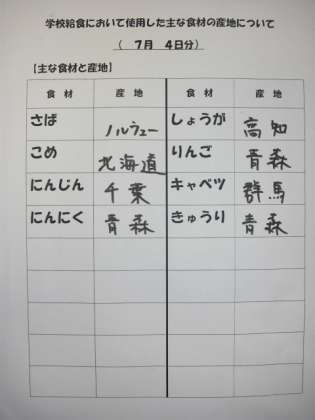 学校給食において使用した主な食材の産地について
( 7月 4日分)
【主な食材と産地】
食 材 産 地 食 材 産 地
さば ノルウェー しょうが 高知
こめ 北海道 りんご 青森
にんじん 千葉 キャベツ 群馬
にんにく 青森 きゅうり 青森